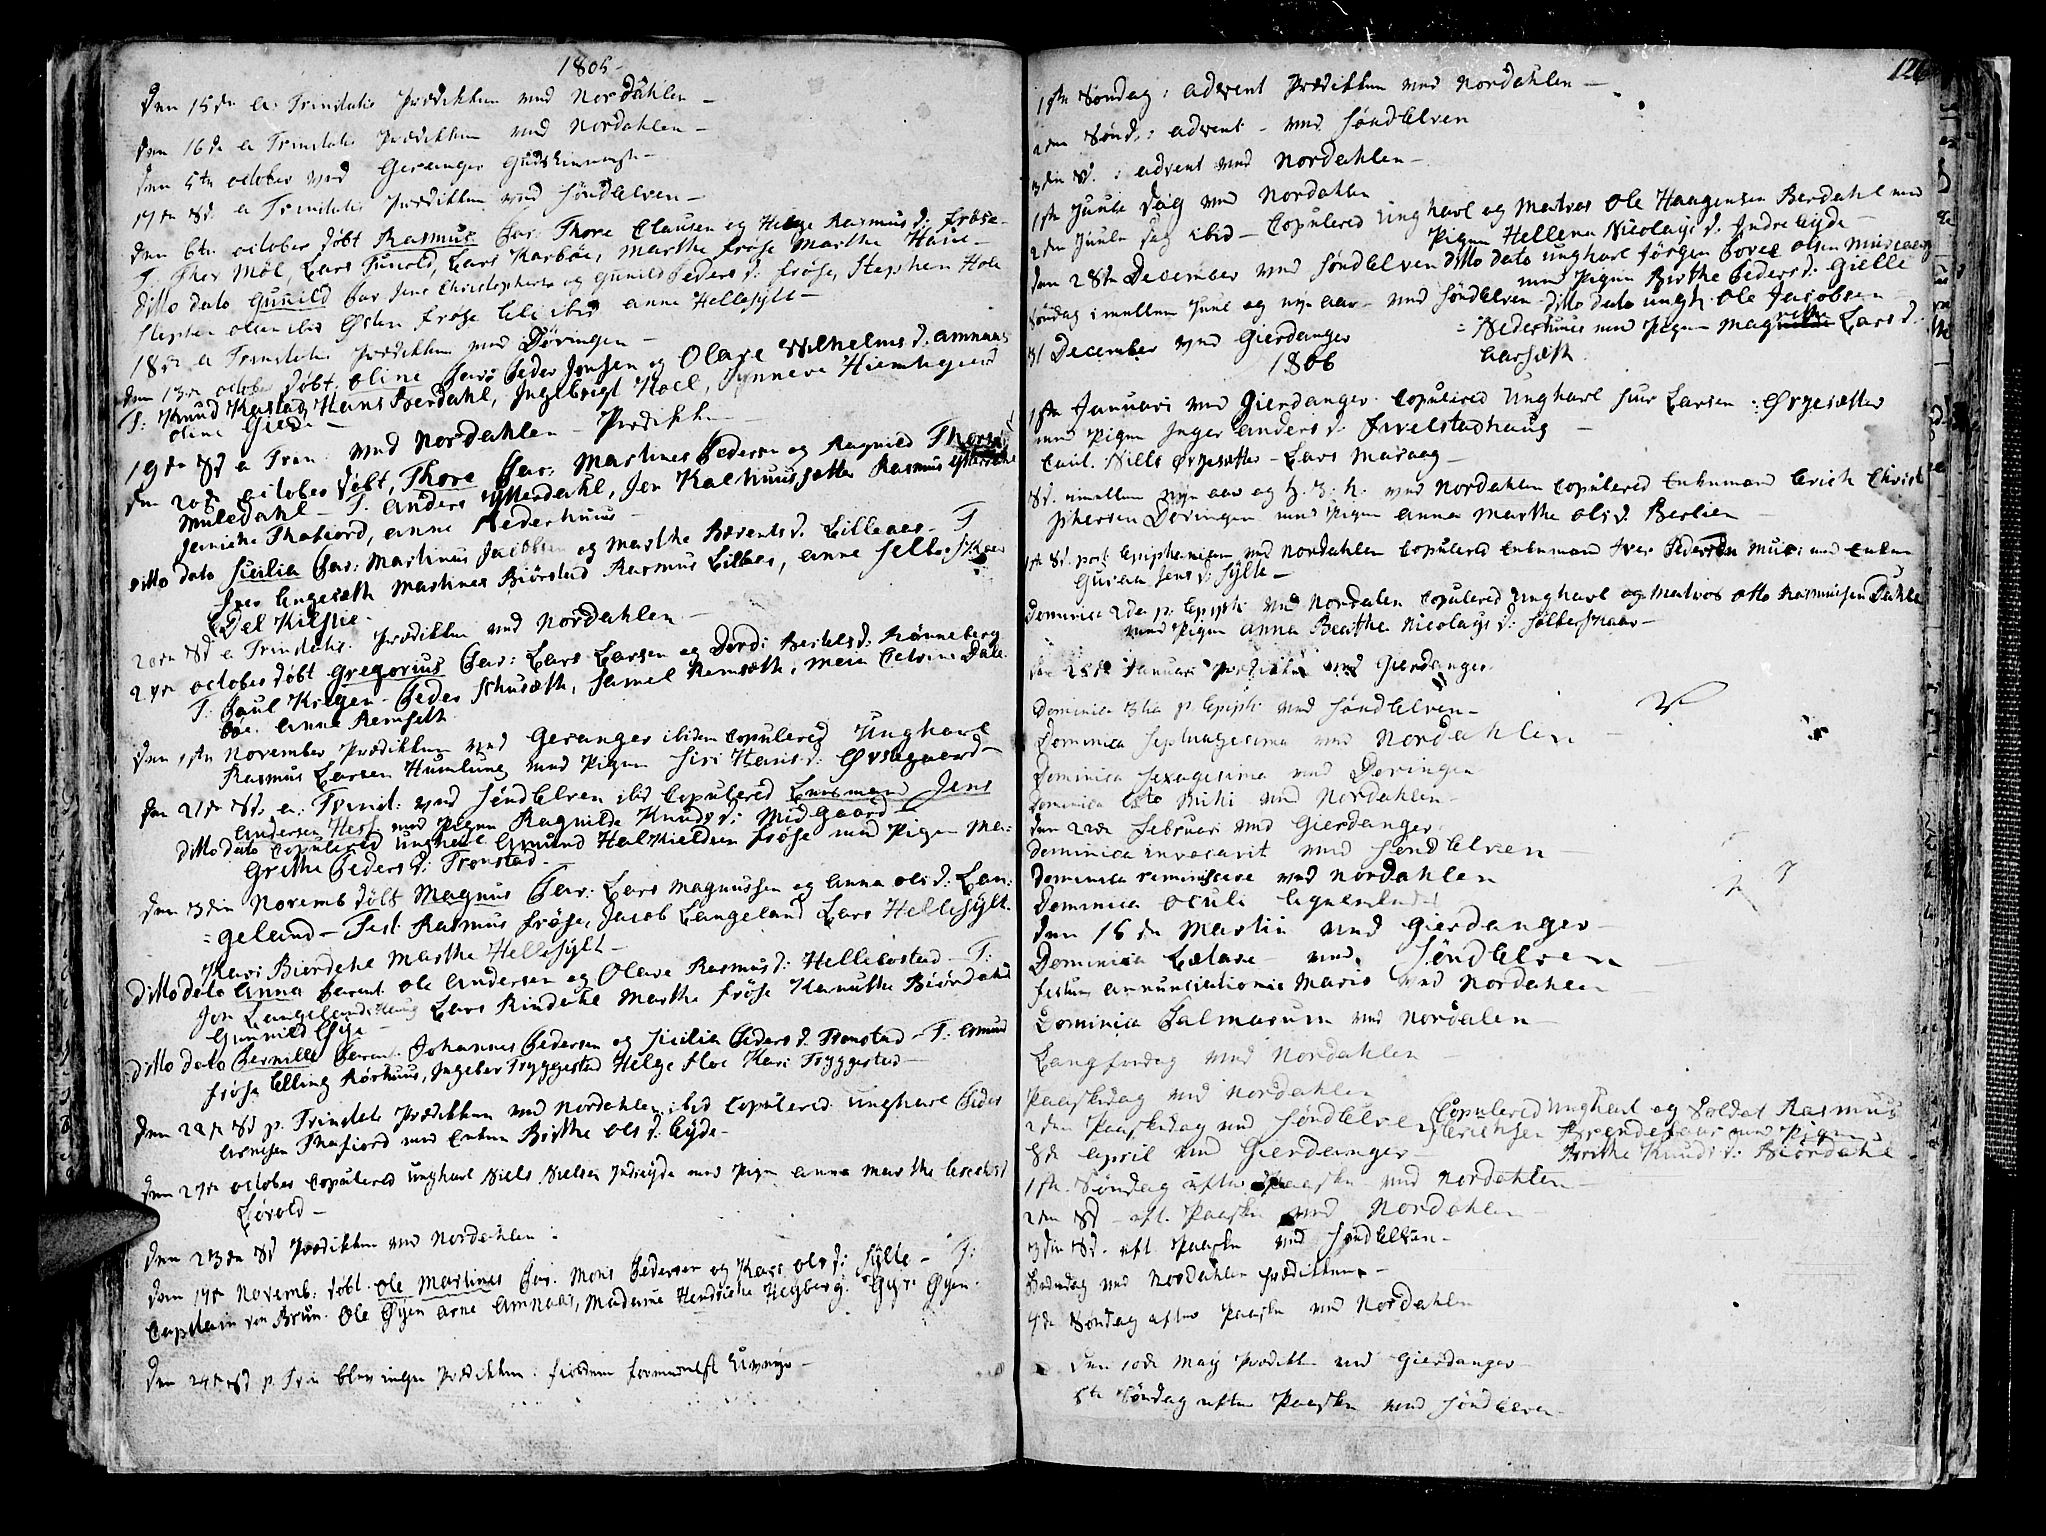 1805
Den 15de a Trinitatis Prædikken ved Nordahlen
Den 16de a Trinitatis Prædikken ved Nordahlen
Den 5te october ved Geranger Gudstienneste
17de Sd. a Trinitatis Prædikken ved Søndelven
Den 6te october døbt Rasmus Par: Thore Clausen og Helge Rasmus d: Frøse
T. Thor Möl, Lars Tunold, Lars Karböe, Marthe Frøse Marthe Have
Ditto dato Gunild Par Jens Christophersen og Gunild Peders d: Frøse, Stephen Hole
Stephen olsen ibid Østen Frøse Eli ibid anne Hellesylt
18de a Trinitatis Prædikken ved Døvingen
Den 13de october døbt oline Par: Peder Jonsen og Olave Wilhelms d. amnaas
T: Knud Kastad Hans Berdahl, Ingebrigt Hoel, Synneve
oline Gierde
19de Sd a Trin: ved Nordahlen Prædikken
Den 20de october døbt, Thore Par: Martines Pedersen og Ragnild Thores
Muledahl T. anders Ytterdahl, Jon Kaldhuussetter Rasmus
Jenicke Thafiord, anne Nederhuus
Ditto dato Sicilia Par: Martinus Jacobsen og Marthe Berents d. Lilleaas T
Iver Engesæth Martines Biörstad Rasmus Lilleaas, anne
Del Kilstie.
20de Sd a Trinitatis Prædikken ved Nordahlen
27de october døbt Gregorius Par: Lars Larsen og Dordi Bertels d: Rønneberg
T. Paul Krigen Peder Schusæth, Samel Remsæth,
böe. Anne Remseth
Den 1ste November Prædikken ved Geranger ibidem Copulered Ungkarl
Rasmus Larsen Humlung med Pigen Siri Hans d: Ørstegaard
Den 21de Sd. a. Trinit: ved Søndelven ibid Copulered Enkemand Jens
Andersen Hest med Pigen Ragnilde Knuds d: Midgaard
Ditto dato Copulered Ungkarl Amund Halkieldsen Frøse med Pigen Mar:
Grethe Peders d: Tronstad
Den 3die Novemb døbt Magnus Par: Lars Magnussen og Anna ols d: Lan:
=geland Test. Rasmus Frøse, Jacob Langeland Lars Hellesylt.
Kari Bierdahl Marthe Hellesylt
Ditto dato Anna Parent Ole Andersen og Olave Rasmus d: Hellebostad T:
Jon Langelandshaug Lars Rindahl Marthe Frøse Kanutte Biørdahl
Gunnild Eyse
Ditto dato Pernille Parent. Johannes Pedersen og Sicilia Peders d. Tronstad T: Amund
Frøse Elling Rørhuus, Ingebor Tryggestad Helge Hoe Kari Tryggestad
Den 22de Sd p. Trinitatis Prædikken ved Nordahlen ibid Copulered Ungkarl Peder
Arnesen Thafiord med Enken Birthe ols d. Eyde
Den 27de october Copulered Ungkarl Niels Nielsen Indreeyde med Pigen anna Marthe
Løvold
Den 23de Sd Prædikken ved Nordahlen
Den 17de Novemb: døbt Ole Martines Par. Mons Pedersen og Kari ols d: Sylte T:
Captain von Brun. Ole Øyen arne Amnaas, Madame Hendriche Hegberg. Øyen.
Den 24de Sd p. Trin blev ingen Prædikken
126
1ste Søndag i advent Prædikken ved Nordahlen
2den Sønd: advent ved Søndelven
3die Sd. i advent ved Nordahlen
1ste Juule Dag ved Nordahlen
2den Juule dag ibid Copulered Ungkarl og Matros Ole Haagensen Berdahl med
Pigen Hellena Nicolays d. Indre Eyde
Den 28de December ved Søndelven Ditto dato Ungkarl Jørgen olsen
med Pigen Birthe Peders d: Gielle
Søndag imellem Juul og nye aar ved Søndelven Ditto dato ungk. Ole Jacobsen
Nederhuus med Pigen Lars d.
Aarsæth
31 December ved Gierdanger
1806
1ste Januari ved Gierdanger Copulered Ungkarl Siur Larsen Ørjesætter
med Pigen Inger anders d. Fivelstadhaug
Caut. Nills Ørjesætter Lars Maraag
Sd. imellem nye aar og h. 3. k. ved Nordahlen Copulered Enkemand Erich Christ
ophersen Døvingen med Pigen anna Marthe ols d. Berlien
1ste Sd. post Epiphaniam ved Nordahlen Copulered Enkemand Iver Pedersen Muri med Enken
Guroa Jens d: Sylte
Dominica 2da p. Epiph ved Nordalen Copulered Ungkarl og Matros Otto Rasmussen Dahle
med Pigen Anna Beathe Nicolays d: Selberskaar
Den 28de Januari Prædiken ved Gierdanger.
Dominica 3tia p. Epiph ved Søndelven
Dominica Septuagesima ved Nordahlen
Dominica Sexagesima ved Døvingen
Dominica Esto Mihi ved Nordahlen
Den 22de Februari ved Gierdanger
Dominica invocavit ved Søndelven
Dominica reminiscere ved Nordahlen
Dominica oculi
Den 16de Martii ved Gierdanger
Dominica Lætare ved Søndelven
Festum annuntiationis Mariæ ved Nordahlen
Dominica Palmarum ved Nordalen
Langfredag ved Nordahlen
Paaskedag ved Nordahlen
2den Paaskedag ved Søndelven Copulered Ungkarl og Soldat Rasmus
Erichsen med Pigen
Brithe Knuds d: Biørdahl
8de April ved Gierdanger
1ste Søndag efter Paaske ved Nordahlen
2den Sd eft. Paaske ved Nordahlen
3die Sd. eft Paaske ved Søndelven
Bededag ved Nordahlen Prædikken
4de Søndag efter Paaske ved Nordahlen
Den 10de May Prædikken ved Gierdanger
5te Søndag efter Paaske ved Søndelven